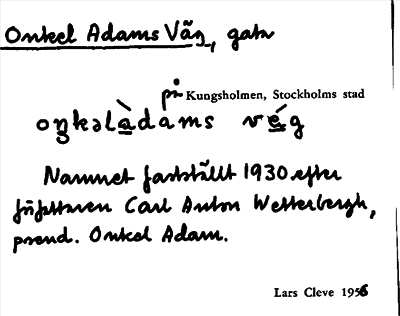 Onkel Adams Väg, gata
på Kungsholmen, Stockholms stad
oŋkəlàdams vég
Namnet fastställt 1930 efter
författaren Carl Anton Wetterbergh,
pseud. Onkel Adam.
Lars Cleve 1956